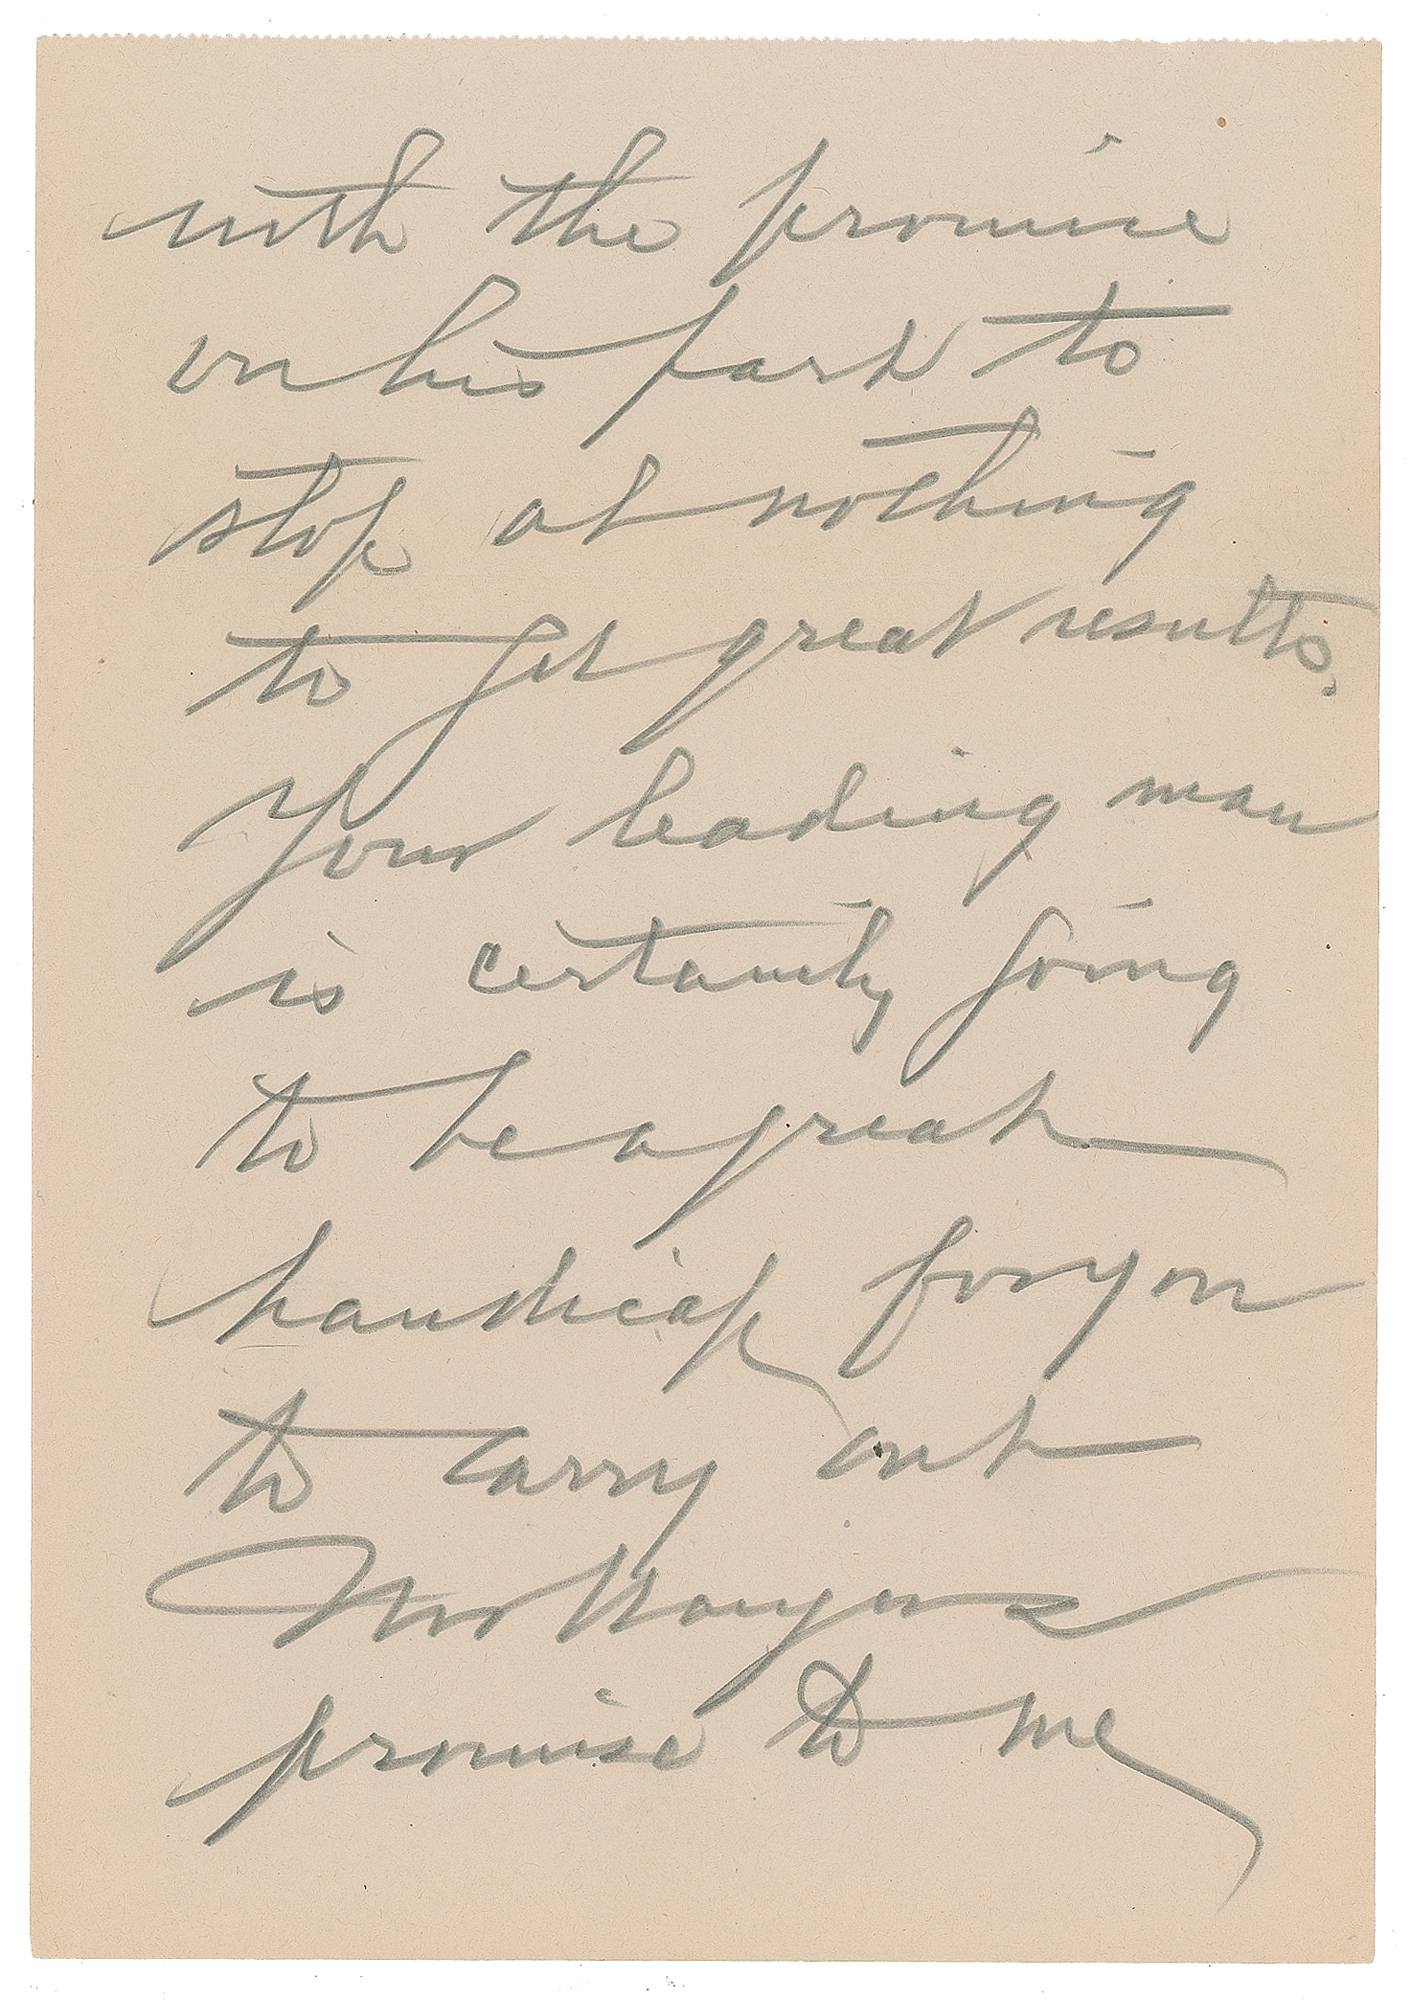 with the promise
on his part to
stop at nothing
to get great results.
Your leading man
is certainly going
to be a great
handicap for you
to carry out
Mr
promise to me